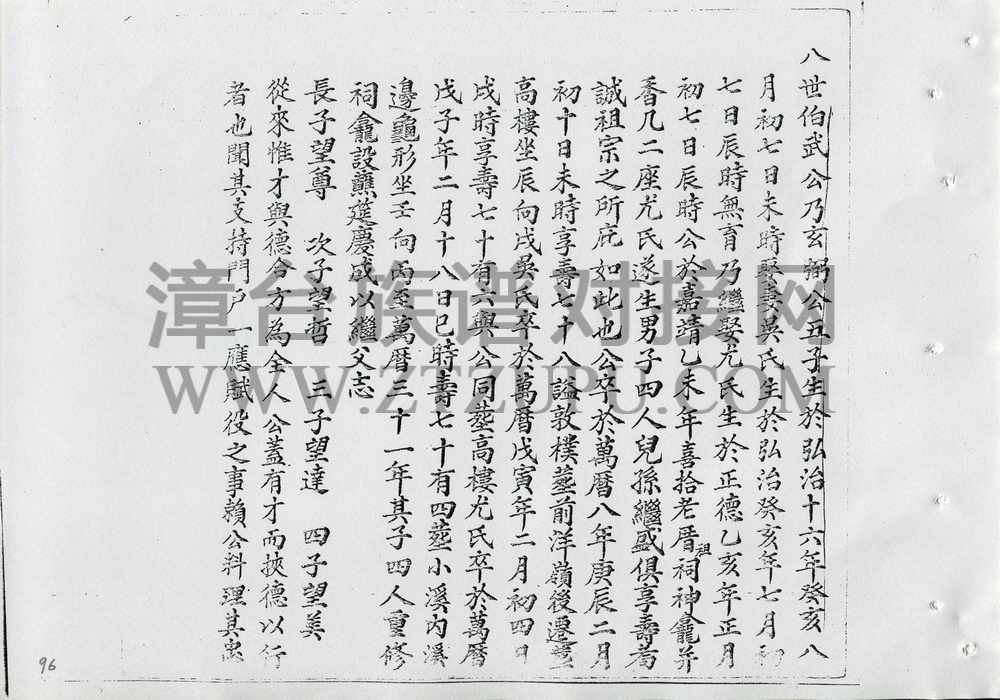 八世伯武公乃玄弼公五子生於弘治十六年癸亥八
月初七日未時娶妻吳氏生於弘治癸亥年七月初
七日辰時無育乃繼娶尤氏生於正德乙亥年正月
初七日辰時公於嘉靖乙未年喜拾老厝祖祠神龕并
香几二座尤氏遂生男子四人兒孫繼盛俱享壽者
誠祖宗之所庇如此也公卒於萬曆八年庚辰二月
初十日未時享壽七十八謚敦樸葬前洋嶺後遷塟
高樓坐辰向戌吳氏卒於萬曆戊寅年二月初四日
戌時享壽七十有六與公同塟高樓尤氏卒於萬曆
戊子年二月十八日巳時壽七十有四塟小溪內溪
邊龜形坐壬向丙至萬曆三十一年其子四人重修
祠龕設醮筵慶成以繼父志
長子望尊 次子望哲 三子望達 四子望美
從來惟才與德合方為全人公蓋有才而挾德以行
者也聞其支持門户一應賦役之事賴公料理其忠
漳台族谱对接网
WWW.ZTZUPU.COM
96